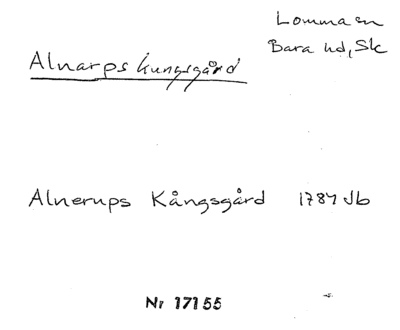 Lomma sn
Bara hd, Sk
Alnarps kungsgård
Alnerups Kångsgård 1784 Jb
Nr 17155